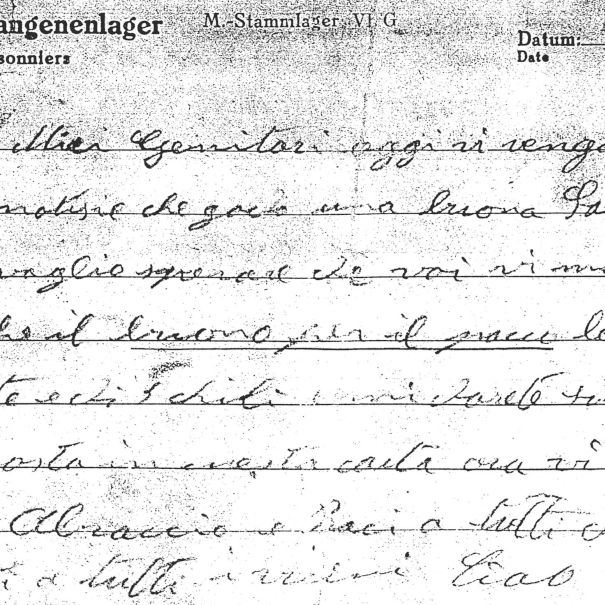 angenenlager M.-Stammlager VI G
Datum:
sonniers Date
Miei Genitori oggi vi veng
notisie che godo una buona Sa
voglio sperare che voi vi
he il buono per il pacco
te e di 5 chili mi darete
osta in questa carta ora vi
Abraccio e Baci a tutti
a tutti i vicini Ciao